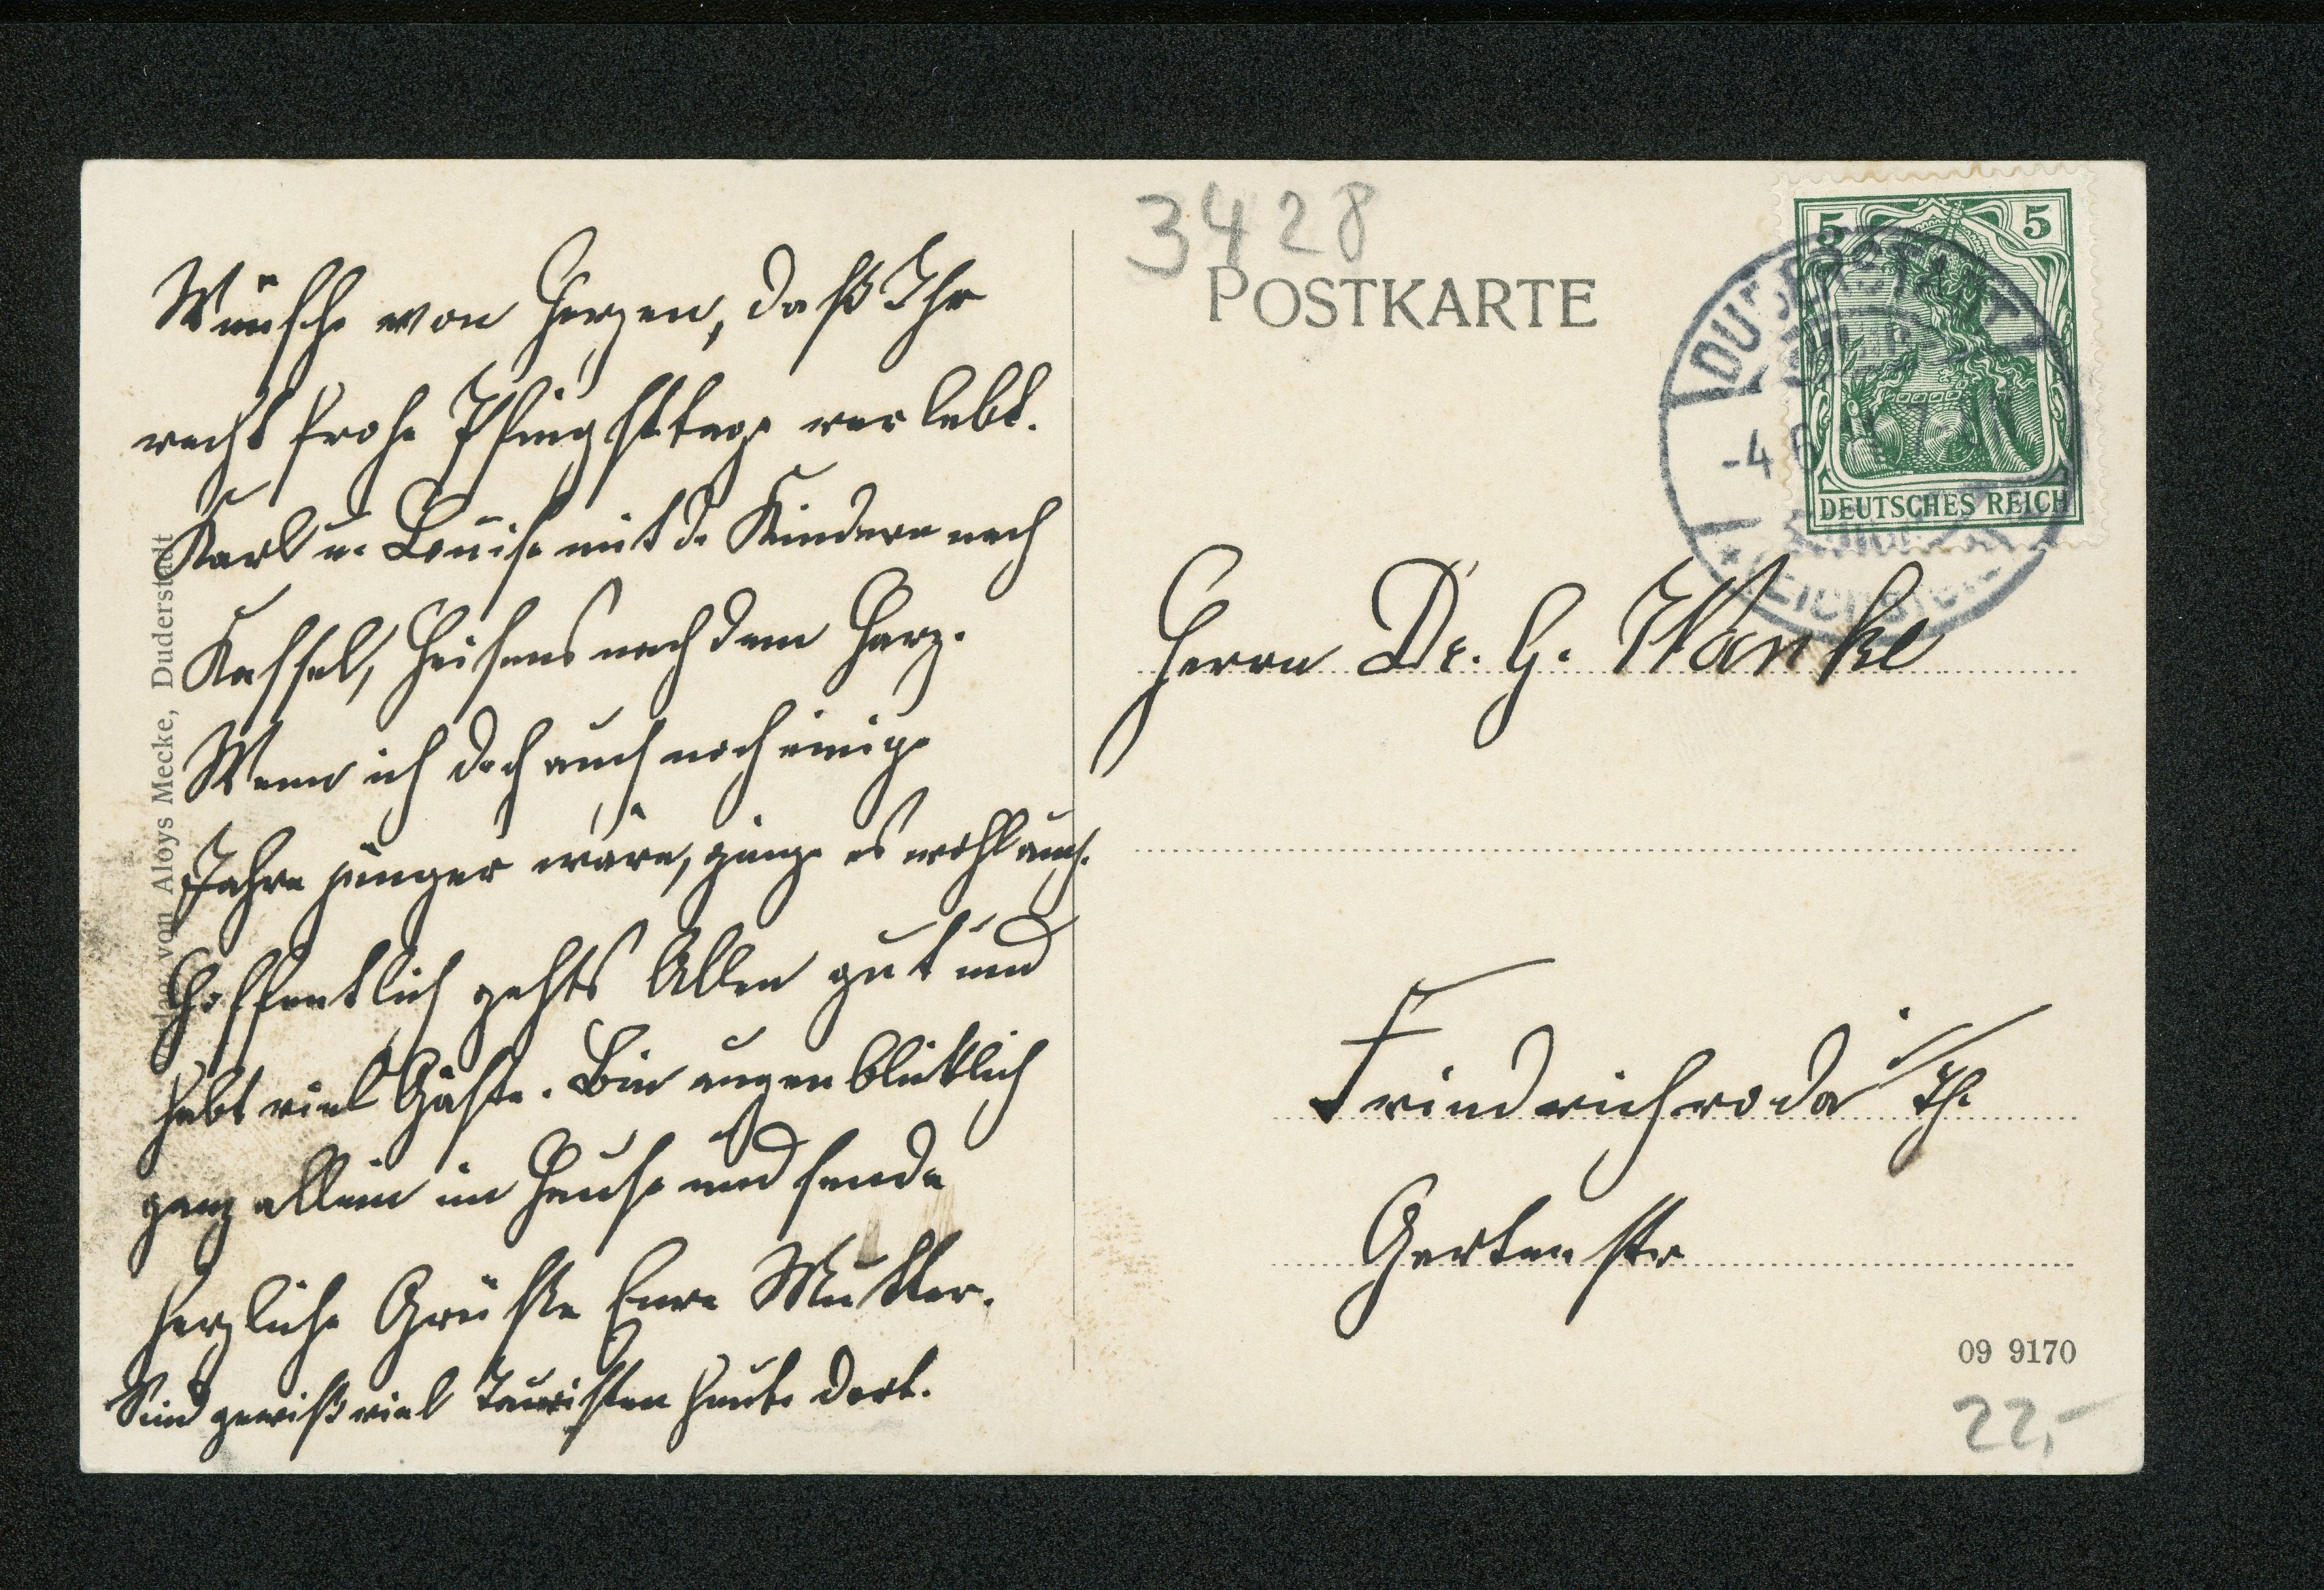 Wünsche von Herzen, daß Ihr
recht frohe Pfingsttage verlebt.
Karl u. Louise mit d. Kindern nach
Kassel, Heisens nach dem Harz.
Wenn ich doch auch noch einige
Jahre jünger wäre, ginge es wohl auch.
Hoffentlich gehts Allen gut und
habt viel Gäste. Bin augenblicklich
ganz allein im Hause und sende
herzliche Grüße Eure Mutter.
Sind gewiß viel Touristen heute dort.
Verlag von Aloys Mecke, Duderstadt
3428
POSTKARTE
5 5
DEUTSCHES REICH
DUDERSTADT
-4 6
Herrn Dr. G. Wanke
Friedrichroda i/Th.
Gartenstr
09 9170
22,-